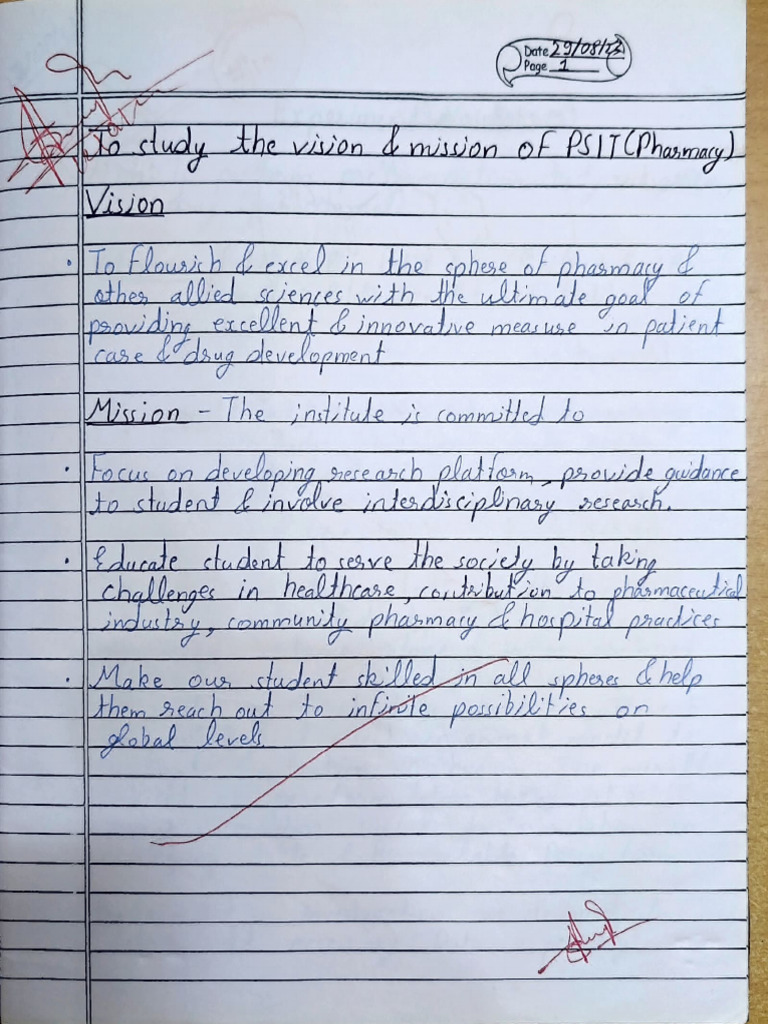 Date 29/08/22
Page 1
To study the vision & mission of PSIT (Pharmacy)
Vision
• To flourich & excel in the sphere of pharmacy &
other allied sciences with the ultimate goal of
providing excellent & innovative measure in patient
care & drug development
Mission - The institute is committed to
• Focus on developing research platform, provide guidance
to student & involve interdisciplinary research.
• Educate student to serve the society by taking
challenges in healthcare, contribution to pharmaceutical
industry, community pharmacy & hospital practices
• Make our student skilled in all spheres & help
them reach out to infinite possibilities on
global levels